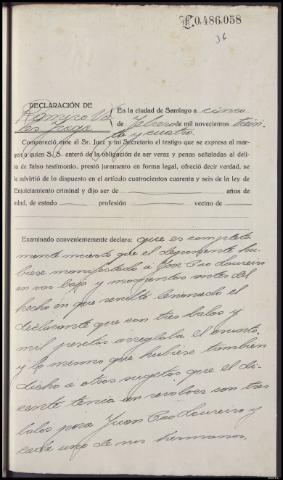 L.0.486.058
36
DECLARACIÓN DE
Ramiro
En la ciudad de Santiago a cinco
de Febrero de mil novecientos trein-
ta y cuatro.
Compareció ante el Sr. Juez y mi Secretario el testigo que se expresa al mar-
gen a quien S. S. enteró de la obligación de ser veraz y penas señaladas al deli-
to de falso testimonio, prestó juramento en forma legal, ofreció decir verdad, se
le advirtió de lo dispuesto en el artículo cuatrocientos cuarenta y seis de la ley de
Enjuiciamiento criminal y dijo ser de años de
edad, de estado profesión vecino de
Examinado convenientemente declara: que es completa
mente incierto que el deponente hu-
biese manifestado a José Pao Loureiro
en voz baja y momentos antes del
hecho en que resultó lesionado el
declarante que con tres balas y
mil pesetas arreglaba el asunto,
y lo mismo que hubiese tambien
dicho a otros sugetos que el di-
cente tenia un revolver con tres
balas para Juan Pao Loureiro y
cada uno de sus hermanos.